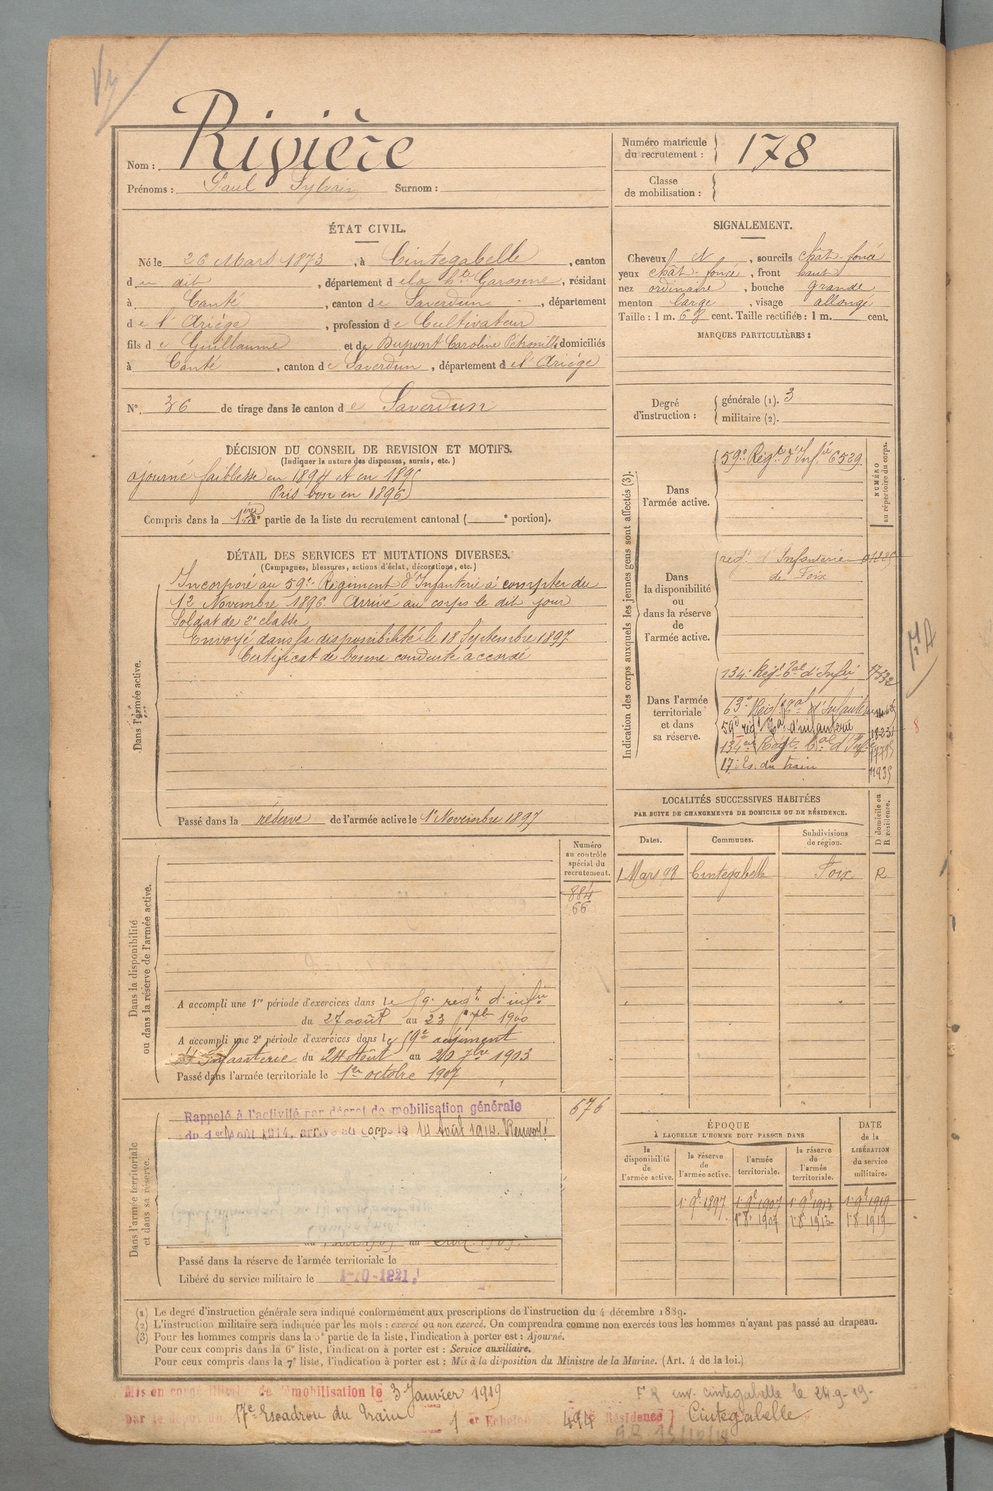 Rivière
Nom :
Prénoms : Paul Sylvain Surnom :
Numéro matricule du recrutement : 178
Classe de mobilisation :
ÉTAT CIVIL.
Né le 26 Mars 1873, à Cintegabelle, canton
du dit, département de la hte Garonne, résidant
à Canté, canton de Saverdun, département
de l'Ariége, profession de Cultivateur
fils de Guillaume et de Dupont Caroline Pétronille domiciliés
à Canté, canton de Saverdun, département de l'Ariége
N° 36 de tirage dans le canton de Saverdun
SIGNALEMENT.
Cheveux N, sourcils chât-foncé
yeux chât-foncé, front haut
nez ordinaire, bouche grande
menton large, visage allongé
Taille : 1 m. cent. Taille rectifiée : 1 m. cent.
MARQUES PARTICULIÈRES :
Degré d'instruction :
générale (1). 3
militaire (2).
DÉCISION DU CONSEIL DE REVISION ET MOTIFS.
(Indiquer la nature des dispenses, sursis, etc.)
ajourné faiblesse en 1894 et en 1895
Pris bon en 1896
Compris dans la 1ère partie de la liste du recrutement cantonal ( portion).
DÉTAIL DES SERVICES ET MUTATIONS DIVERSES.
(Campagnes, blessures, actions d'éclat, décorations, etc.)
Dans l'armée active.
Incorporé au 59e Régiment d'Infanterie à compter du
12 Novembre 1896. Arrivé au corps le dit jour
Soldat de 2e classe
Envoyé dans la disponibilité le 18 Septembre 1897
Certificat de bonne conduite accordé
Passé dans la réserve de l'armée active le 1er Novembre 1897
Indication des corps auxquels les jeunes gens sont affectés (3).
NUMÉRO au répertoire du corps.
Dans l'armée active.
59e Régt d'Infie 6529
Dans la disponibilité ou dans la réserve de l'armée active.
regt d'Infanterie
de Foix
Dans l'armée territoriale et dans sa réserve.
134e Régt Tal d'Infie
63e Régt Tal d'Infant
59e régt Tal d'infanterie
134e Régt Tal d'Infie
17e Es. du train
LOCALITÉS SUCCESSIVES HABITÉES
PAR SUITE DE CHANGEMENTS DE DOMICILE OU DE RÉSIDENCE.
Dates. Communes. Subdivisions de région. D domicile ou R résidence.
Cintegabelle Foix R
Dans la disponibilité ou dans la réserve de l'armée active.
Numéro au contrôle spécial du recrutement.
884
66
A accompli une 1re période d'exercices dans le 59e régt d'infie
du 27 août au 23 1900
A accompli une 2e période d'exercices dans le 59e régiment
d'Infanterie du 24 Août au 20 7bre 1903
Passé dans l'armée territoriale le 1er octobre 1907
Dans l'armée territoriale et dans sa réserve.
676
Rappelé à l'activité par décret de mobilisation générale
du 1er Août 1914, arrivé au corps le 14 Août 1914. Renvoyé
Passé dans la réserve de l'armée territoriale le
Libéré du service militaire le 1-10-1921
ÉPOQUE
À LAQUELLE L'HOMME DOIT PASSER DANS
DATE de la LIBÉRATION du service militaire.
la disponibilité de l'armée active. la réserve de l'armée active. l'armée territoriale. la réserve de l'armée territoriale.
1 9e 1897 1 9e 1907 1 9e 1913 1 9e 1919
1 8 1907 1 8 1913 1 8 1919
(1) Le degré d'instruction générale sera indiqué conformément aux prescriptions de l'instruction du 4 décembre 1889.
(2) L'instruction militaire sera indiquée par les mots : exercé ou non exercé. On comprendra comme non exercés tous les hommes n'ayant pas passé au drapeau.
(3) Pour les hommes compris dans la 5e partie de la liste, l'indication à porter est : Ajourné.
Pour ceux compris dans la 6e liste, l'indication à porter est : Service auxiliaire.
Pour ceux compris dans la 7e liste, l'indication à porter est : Mis à la disposition du Ministre de la Marine. (Art. 4 de la loi.)
Mis en congé illimité de démobilisation le 3 Janvier 1919
par le dépôt du 17e Escadron du Train 1er Echelon 494 Résidence Cintegabelle
cintegabelle le 24-9-19-